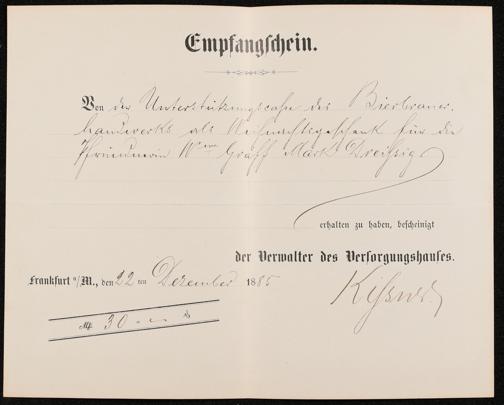 Empfangschein.
Von der Unterstützungscasse des Bierbrauer-
handwerks als Weihnachtsgeschenk für die
Pfründnerin Wwe Graff Mark Dreißig
erhalten zu haben, bescheinigt
der Verwalter des Versorgungshauses.
Frankfurt a/M., den 22 ten Dezember 1885
M 30 - - -